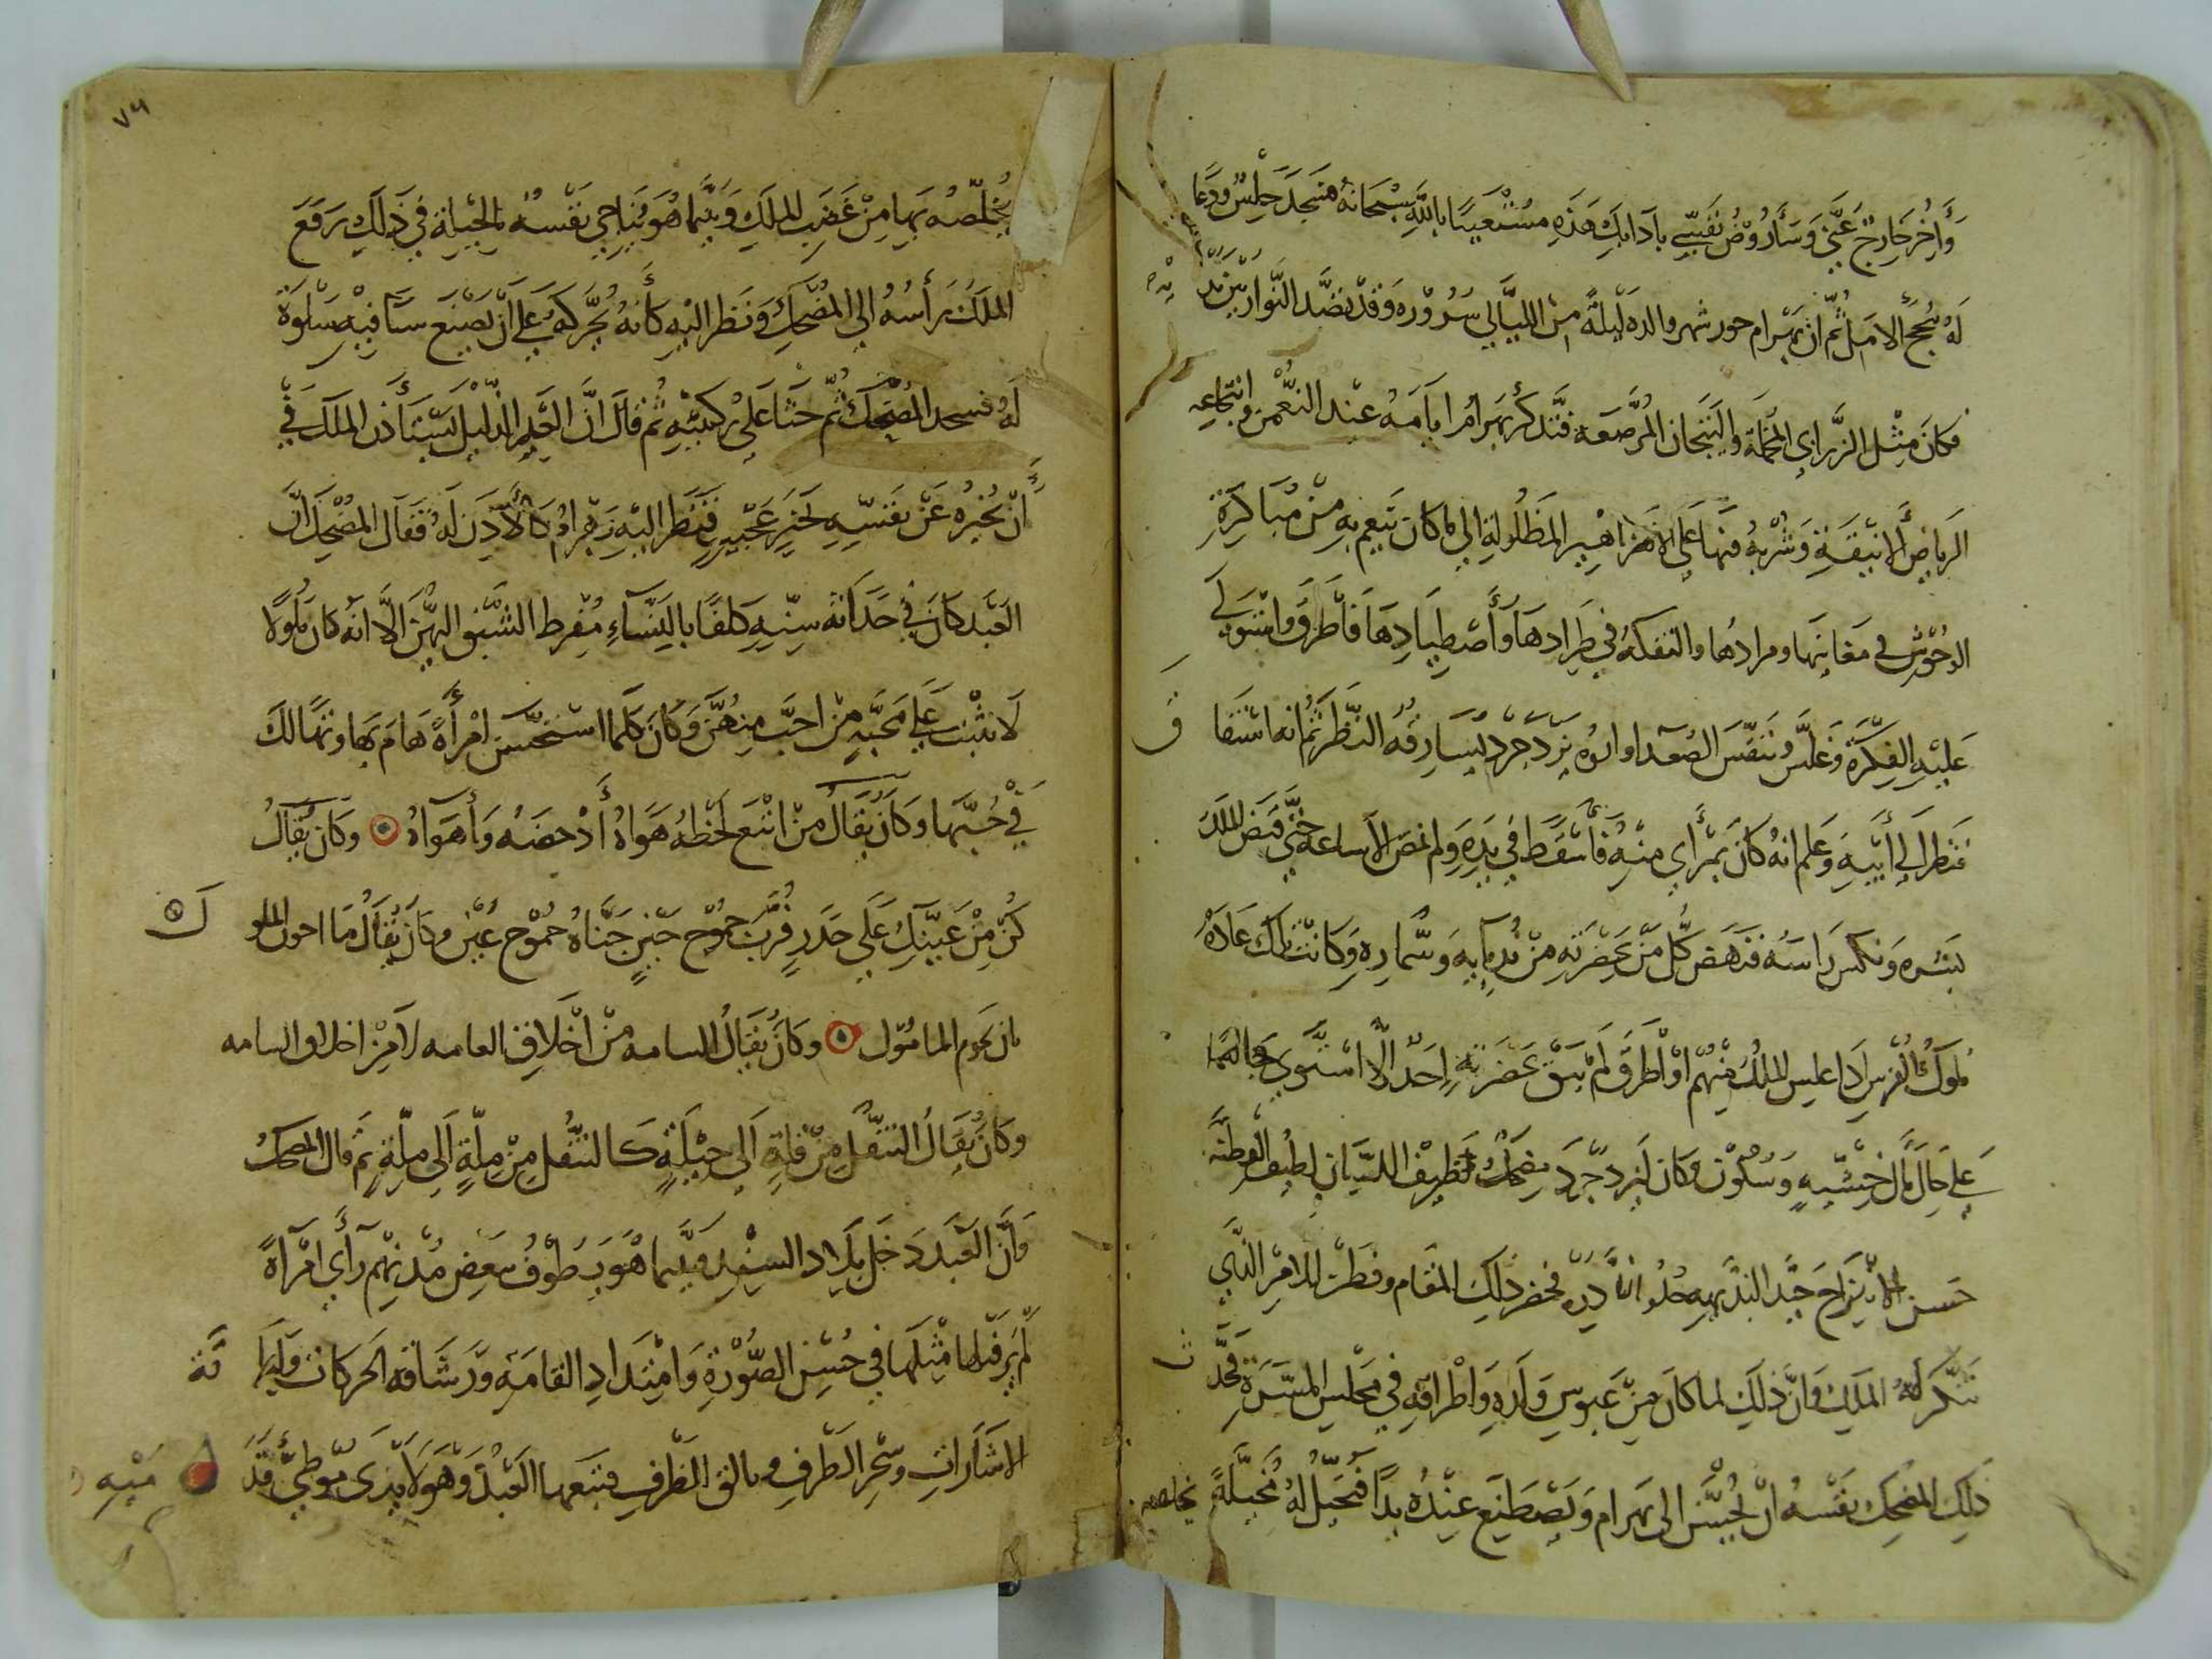 وأخرجا رجّ عنّي وسأروّض نفسي بآدابك هذه مستعينا بالله سبحانه فسجد حليس ودعا
له بنجح الامل ثم ان بهرام جور شهر والده ليلة من الليالي سروره وقد نضد النوار بين يديه
فكان مثل الزرابي المخملة والتيجان المرصعة فتذكر بهرام ايامه عند النعمن وانتجاعه
الرياض الانيقة وشربه فيها على الازاهير المطلولة الى ما كان ينعم به من مباكرة
الوحوش في مغانيها ومرادها والتفكه في طرادها وأصطيادها فأطرق واستولت
عليه الفكرة وعبس وتنفس الصعدا وابوه يزدجرد يسارقه النظر ثم انه استفاق
فنظر الى أبيه وعلم انه كان بمرأى منه فأسقط في يده ولم تمض الا ساعة حتى قبض الملك
بشره ونكس راسه فنهض كل من بحضرته من ندمايه وسماره وكانت تلك عادة
ملوك الفرس اذا عبس الملك منهم او أطرق لم يبق بحضرته احد الا استوى قايما
على حال خشية وسكون وكان ليزدجرد مضحك نظيف اللسان لطيف الفطنة
حسن المزاح جيد البديهه حلو النادرة فحضر ذلك المقام وفطن للامر الذي
تنكر له الملك وان ذلك لما كان من عبوس ولده واطراقه في مجلس المسرة فحدث
ذلك المضحك نفسه ان يحسن الى بهرام ويصطنع عنده يدا فتحيل له بحيلة يخلصه
٧٦
يخلصه بها من غضب الملك وبينما هو يناجي نفسه بالحيلة في ذلك رفع
الملك رأسه الى المضحك ونظر اليه كأنه يحركه على أن يصنع شيا فيه سلوة
له فسجد المضحك ثم جثا على ركبتيه ثم قال ان العبد الذليل يستأذن الملك في
أن يخبره عن نفسه بخبر عجيب فنظر اليه بهرام كالآذن له فقال المضحك ان
العبد كان في حداثة سنه كلفا بالنساء مفرط الشبق اليهن الا انه كان ملولا
لا يثبت على محبة من احب منهن وكان كلما استحسن امرأة هام بها وتهالك
في حبها وكان يقال من اتبع لحظه هواه أدحضه وأهواه ۞ وكان يقال
كن من عينك على حذر فرب جموح حين جناه جموح عين وكان يقال ما احول الملول
بان يحرم المامول ۞ وكان يقال السامه من اخلاق العامه لا من اخلاق السامه
وكان يقال التنقل من خلة الى خلة كالتنقل من ملة الى ملة ثم قال المضحك
وان العبد دخل بلاد السند فبينما هو يطوف ببعض مدنهم رأى امرأة
لم ير قبلها مثلها في حسن الصورة وامتداد القامة ورشاقة الحركات ولباقة
الاشارات وسحر الطرف وتالق الظرف فتبعها العبد وهو لا يدرى موطئ قدميه